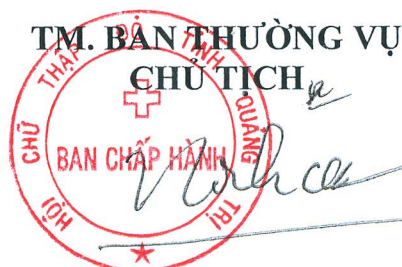 TM. BAN THƯỜNG VỤ
CHỦ TỊCH
HỘI CHỮ THẬP ĐỎ TỈNH QUẢNG TRỊ
BAN CHẤP HÀNH